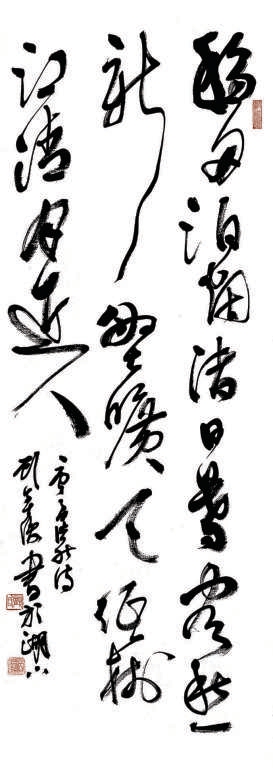 移舟泊烟渚日暮客愁
新野曠天低树
江清月近人
孟浩然诗
书於湖